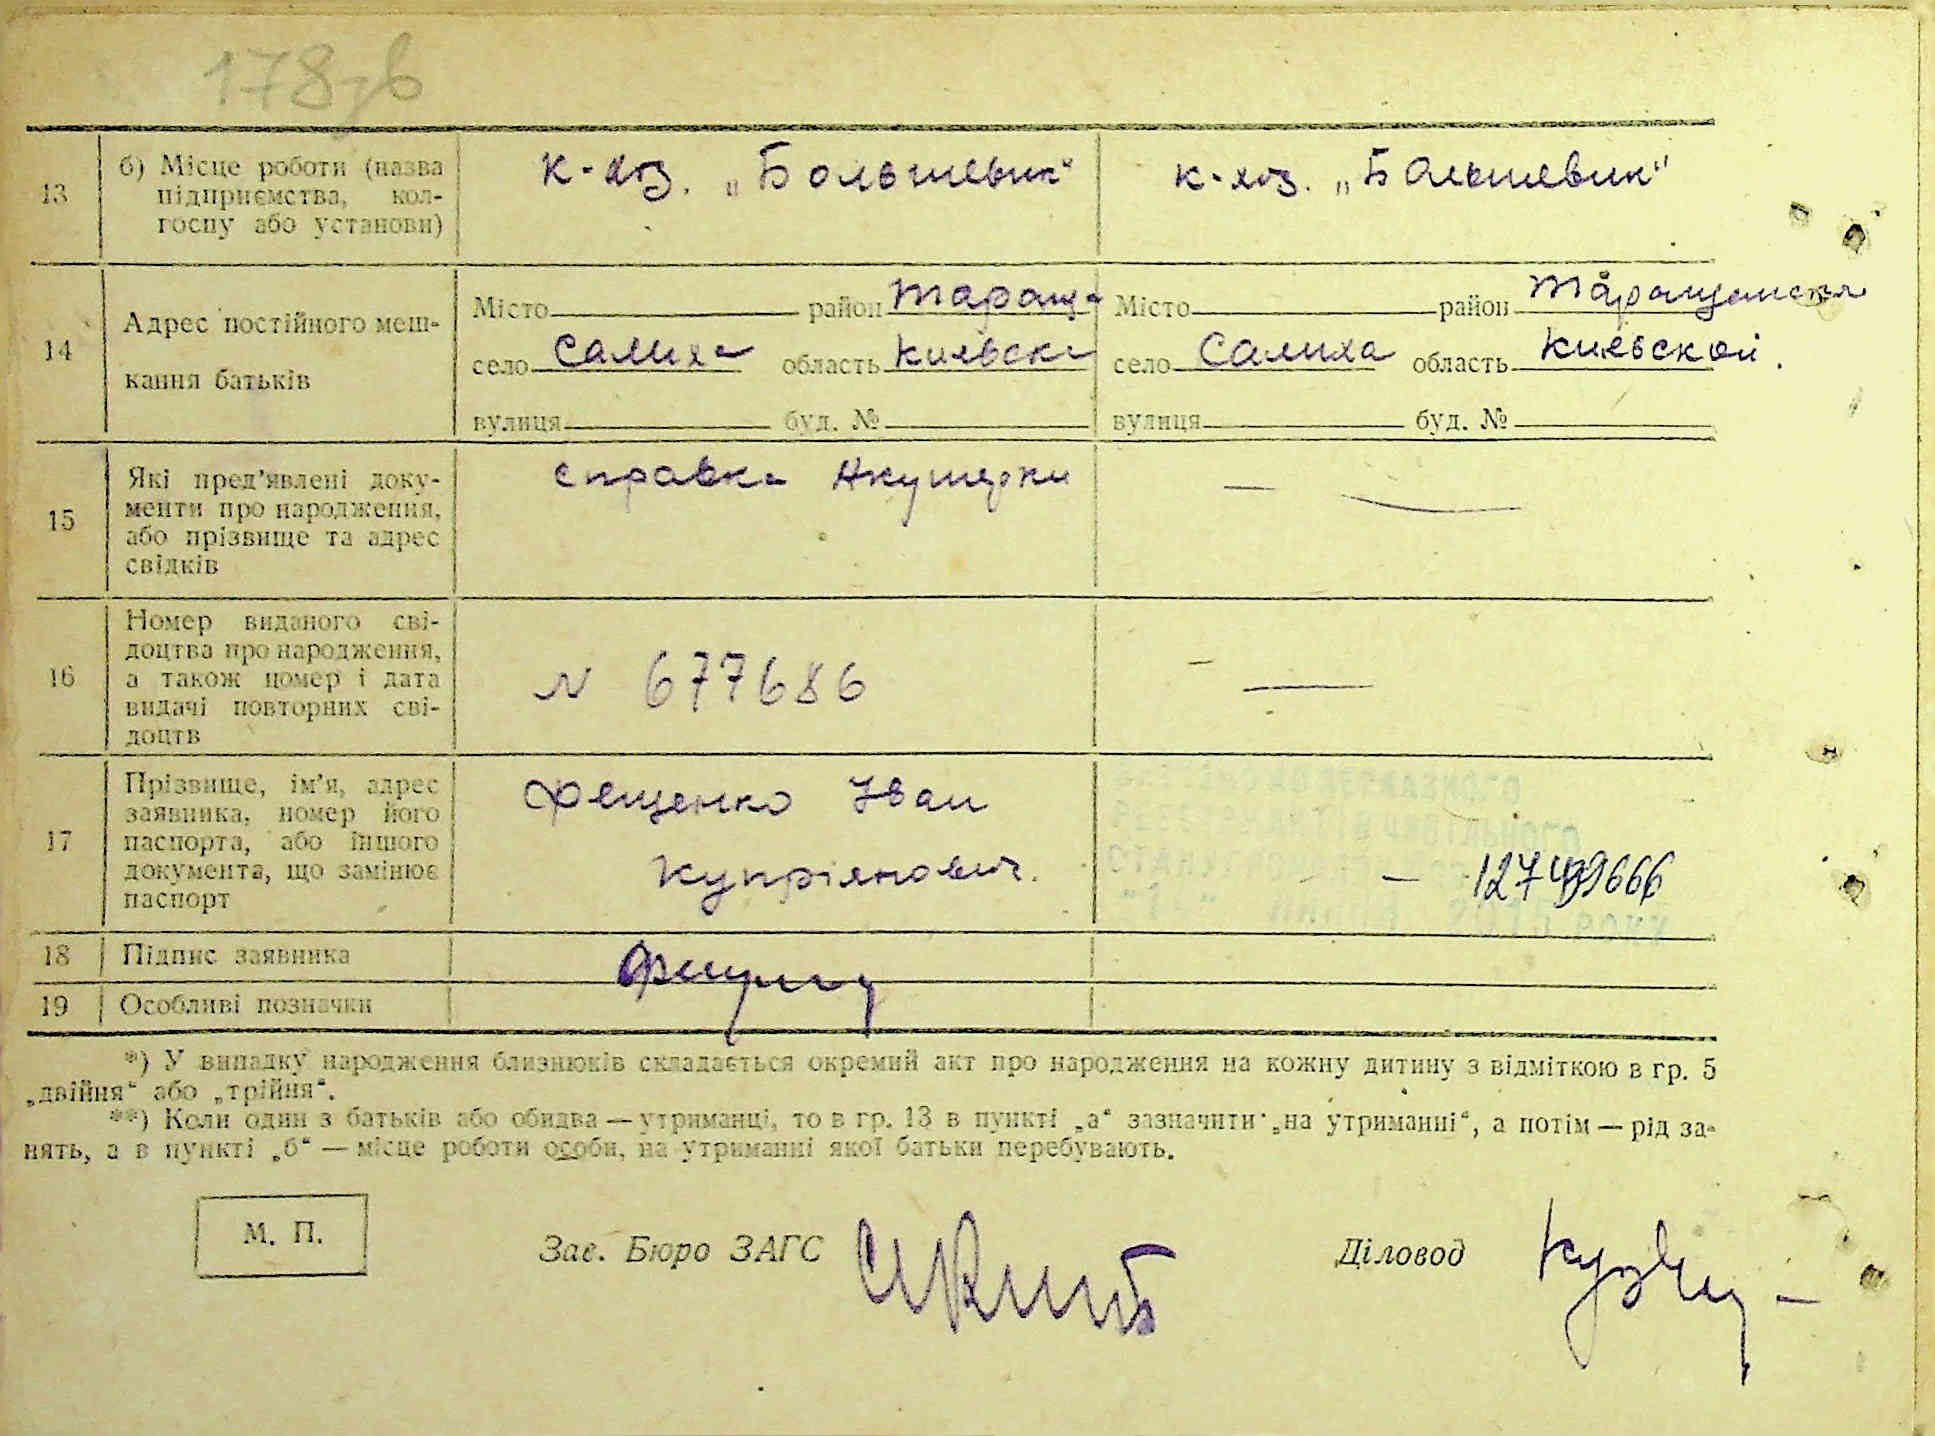 178зв
13
б) Місце роботи (назва
підприємства, кол-
госпу або установи)
к-хоз. „Большевик“
к-хоз. „Большевик“
14
Адрес постійного меш-
кання батьків
Місто район Тараща
село Салиха область Киевска
вулиця буд. №
Місто район Таращанская
село Салиха область Киевской.
вулиця буд. №
15
Які пред’явлені доку-
менти про народження,
або прізвище та адрес
свідків
справка Акушерки
—
16
Номер виданого сві-
доцтва про народження,
а також номер і дата
видачі повторних сві-
доцтв
N 677686
—
17
Прізвище, ім’я, адрес
заявника, номер його
паспорта, або іншого
документа, що замінює
паспорт
Фещенко Іван
Купріянович.
18
Підпис заявника
19
Особливі позначки
*) У випадку народження близнюків складається окремий акт про народження на кожну дитину з відміткою в гр. 5
„двійня“ або „трійня“.
**) Коли один з батьків або обидва — утриманці, то в гр. 13 в пункті „а“ зазначити „на утриманні“, а потім — рід за-
нять, а в пункті „б“ — місце роботи особи, на утриманні якої батьки перебувають.
М. П.
Зав. Бюро ЗАГС
Діловод